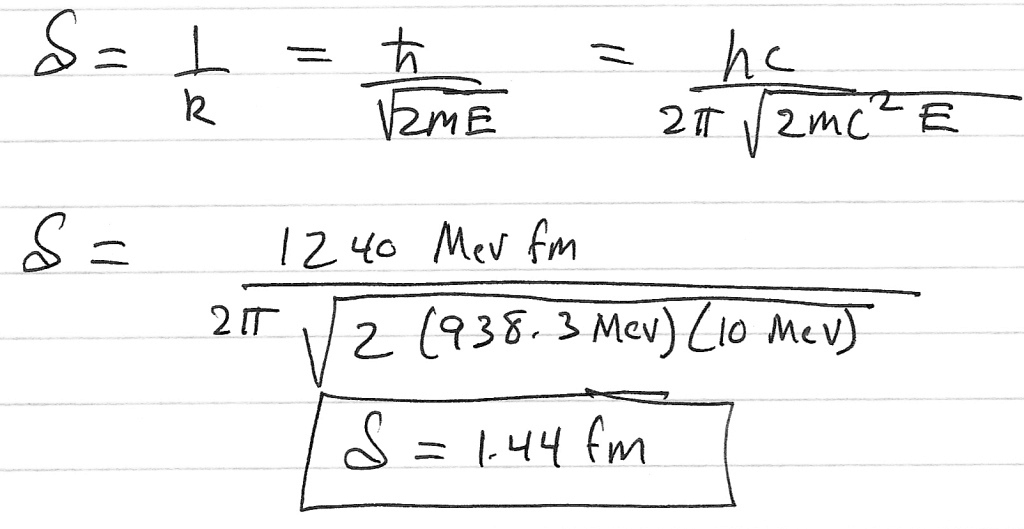 δ = 1/k = ħ/√(2mE) = hc/(2π√(2mc² E))
δ = 1240 Mev fm/(2π√(2 (938.3 Mev)(10 Mev)))
δ = 1.44 fm